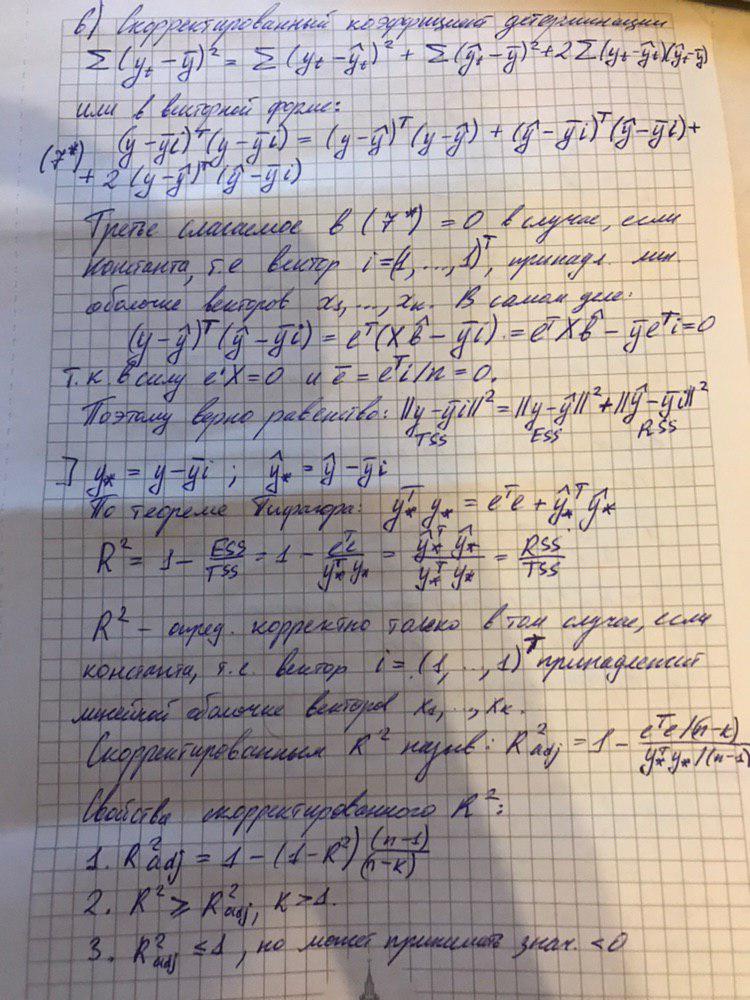 6) Скорректированный коэффициент детерминации
Σ(yₜ-ȳ)² = Σ(yₜ-ŷₜ)² + Σ(ŷₜ-ȳ)² + 2Σ(yₜ-ŷₜ)(ŷₜ-ȳ)
или в векторной форме:
(7*) (y-ȳi)ᵀ(y-ȳi) = (y-ŷ)ᵀ(y-ŷ) + (ŷ-ȳi)ᵀ(ŷ-ȳi)+
+ 2(y-ŷ)ᵀ(ŷ-ȳi)
Третье слагаемое в (7*) = 0 в случае, если
константа, т.е вектор i=(1,...,1)ᵀ, принадл. лин
оболочке векторов x₁,...,xₖ. В самом деле:
(y-ŷ)ᵀ(ŷ-ȳi) = eᵀ(Xb̂-ȳi) = eᵀXb̂-ȳeᵀi=0
т.к. в силу e'X=0 и ē=eᵀi/n=0.
Поэтому верно равенство: ||y-ȳi||²=||y-ŷ||²+||ŷ-ȳi||²
TSS ESS RSS
] y* = y-ȳi ; ŷ* = ŷ-ȳi
По теореме Пифагора: y*ᵀy* = eᵀe + ŷ*ᵀŷ*
R² = 1 - ESS/TSS = 1 - eᵀe/y*ᵀy* = ŷ*ᵀŷ*/y*ᵀy* = RSS/TSS
R² - опред. корректно только в том случае, если
константа, т.е. вектор i=(1,...,1)ᵀ принадлежит
линейной оболочке векторов x₁,...,xₖ.
Скорректированным R² назыв: R²adj = 1 - eᵀe/(n-k)/y*ᵀy*/(n-1)
Свойства скорректированного R²:
1. R²adj = 1-(1-R²)(n-1)/(n-k)
2. R² ≥ R²adj, k>1.
3. R²adj ≤ 1, но может принимать знач. <0